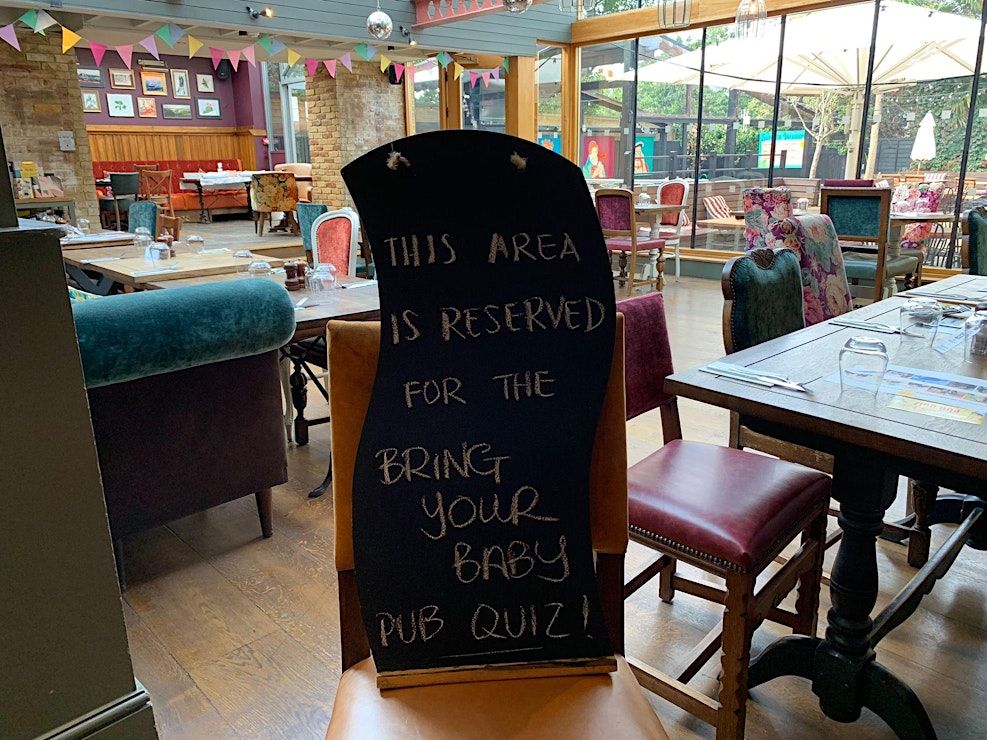 THIS AREA
IS RESERVED
FOR THE
BRING
YOUR
BABY
PUB QUIZ!